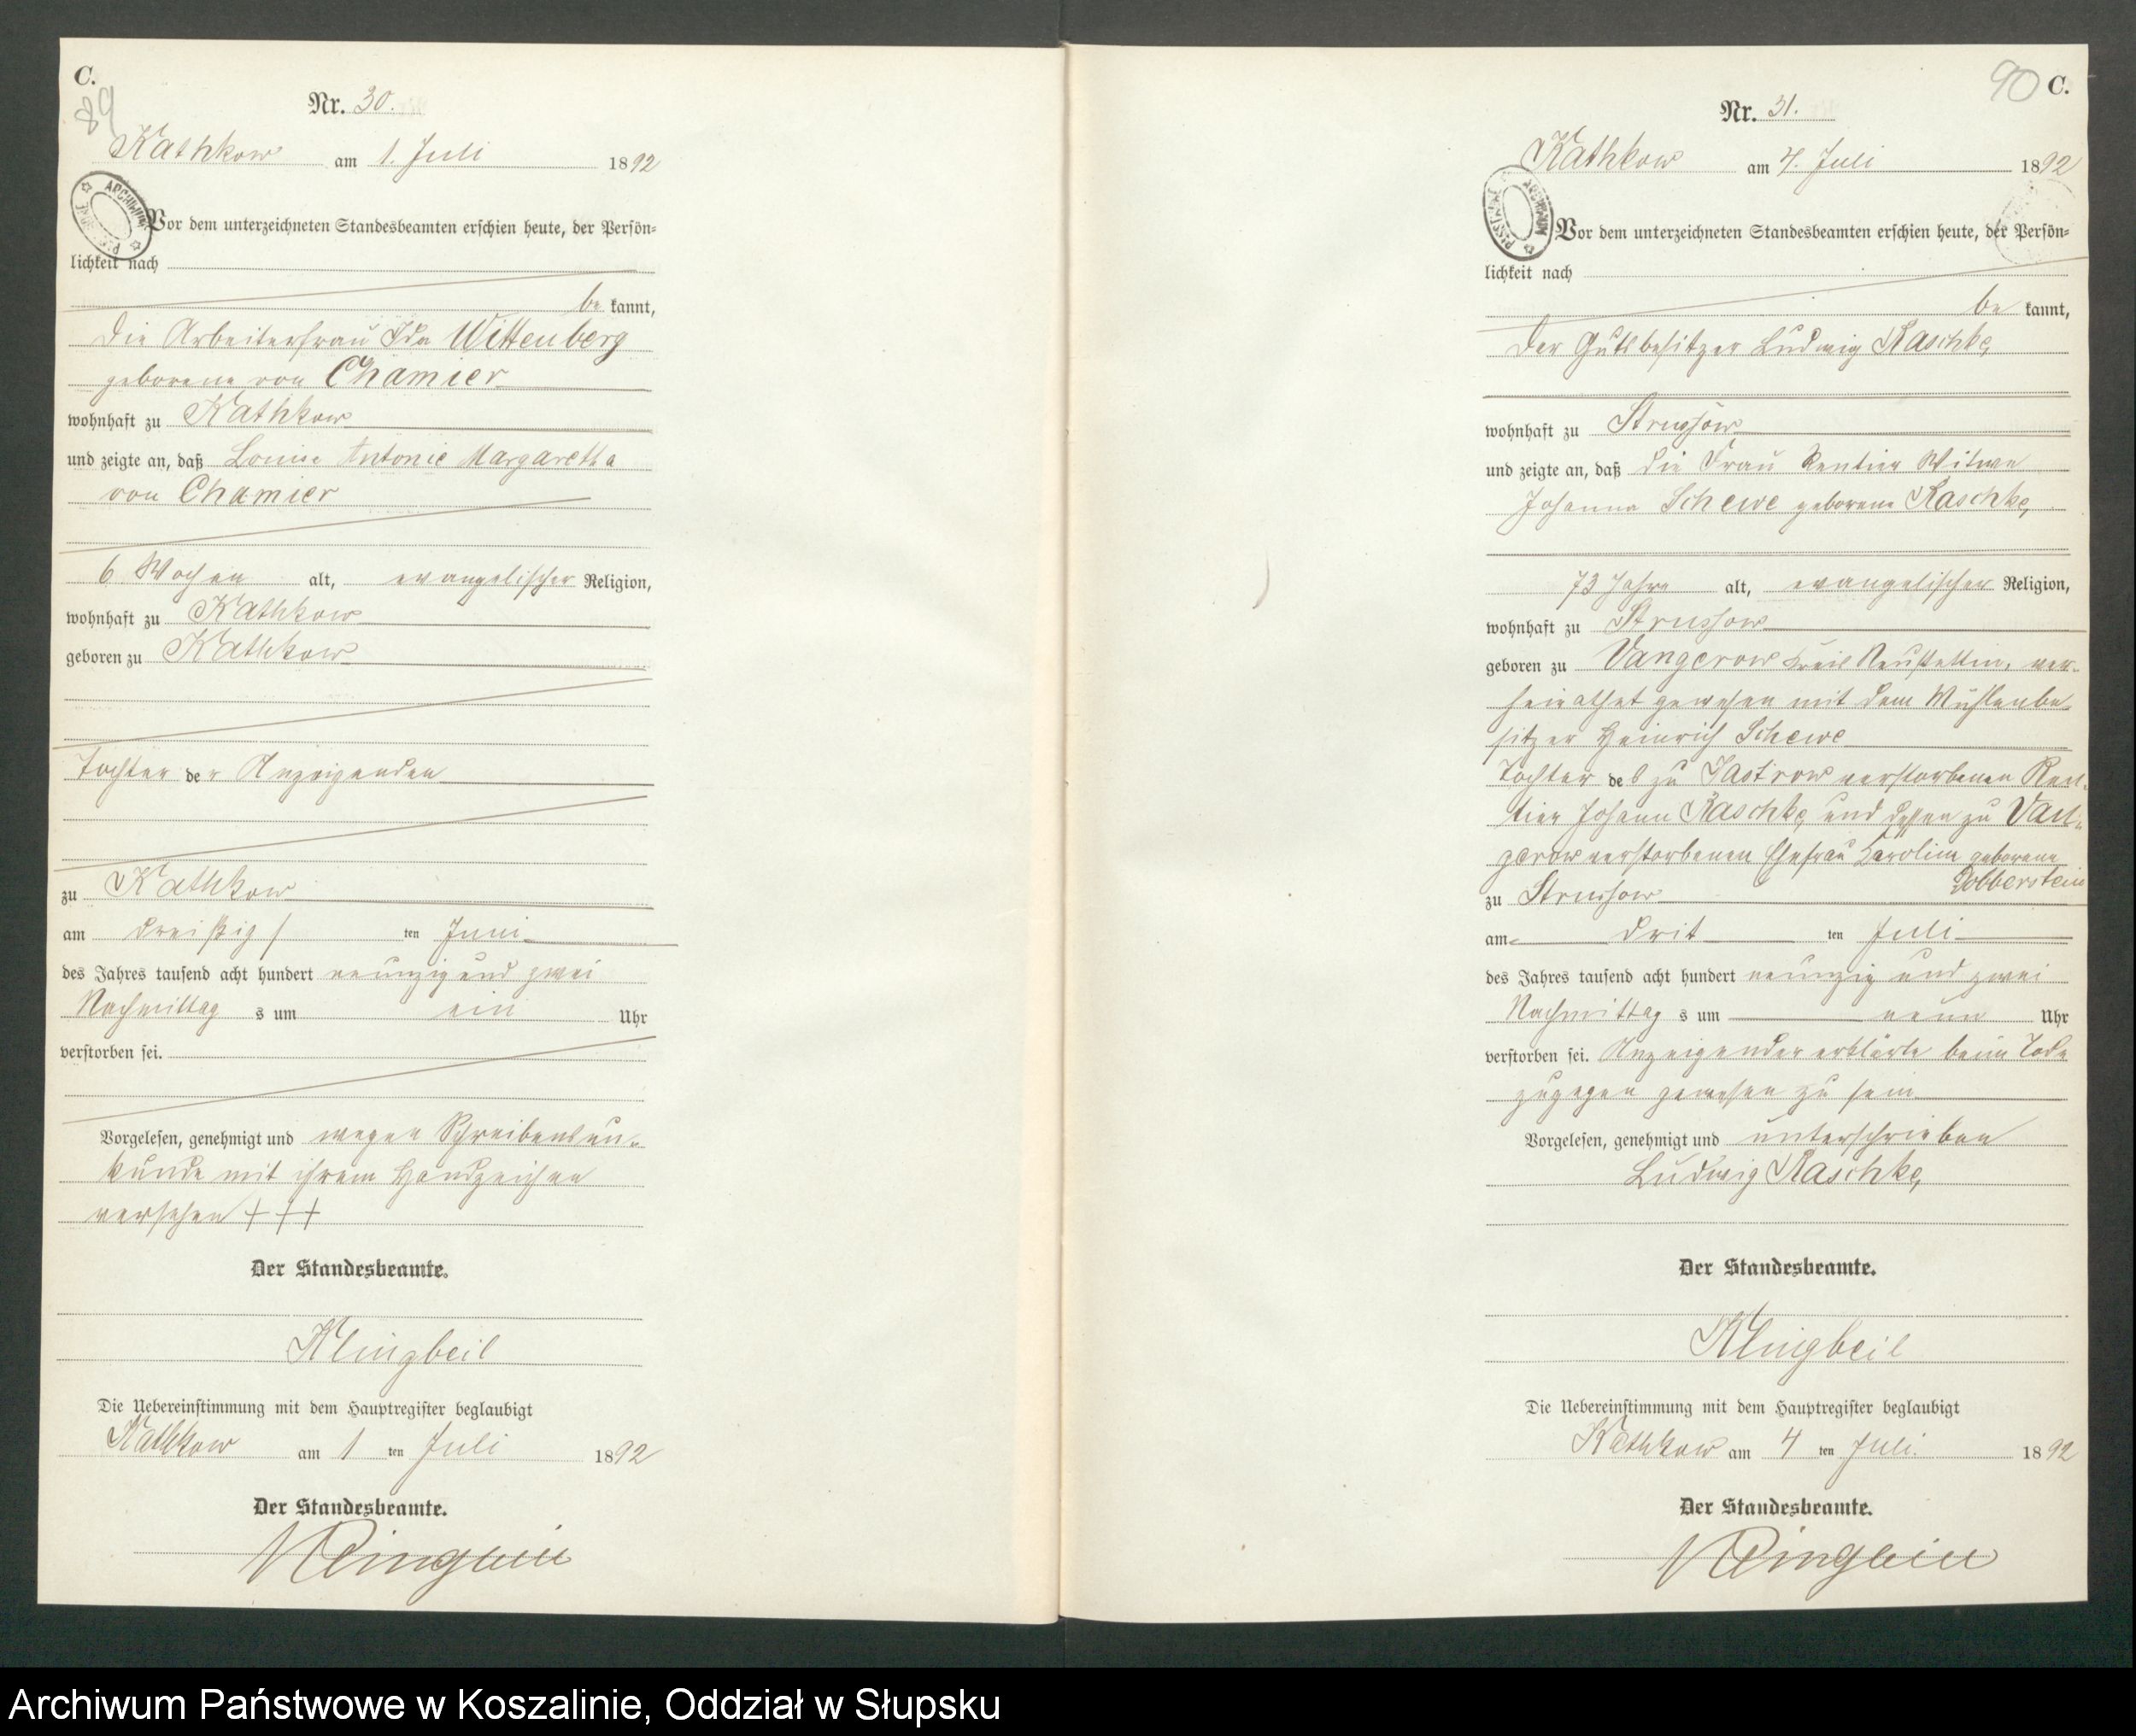 C.
89
Nr. 30.
Kathkow am 1. Juli 1892
ARCHIWUM
Vor dem unterzeichneten Standesbeamten erschien heute, der Persön=
lichkeit nach
be kannt,
die Arbeiterfrau Ida Wittenberg
geborene von Chamier
wohnhaft zu Kathkow
und zeigte an, daß Louise Antonie Margaretha
von Chamier
6 Wochen alt, evangelischer Religion,
wohnhaft zu Kathkow
geboren zu Kathkow
Tochter der Anzeigenden
zu Kathkow
am dreißigs ten Juni
des Jahres tausend acht hundert neunzig und zwei
Nachmittag s um ein Uhr
verstorben sei.
Vorgelesen, genehmigt und wegen Schreibensun-
kunde mit ihrem Handzeichen
versehen + + +
Der Standesbeamte.
Klingbeil
Die Uebereinstimmung mit dem Hauptregister beglaubigt
Kathkow am 1 ten Juli 1892
Der Standesbeamte.
Klingbeil
90 C.
Nr. 31.
Kathkow am 4. Juli 1892
ARCHIWUM
Vor dem unterzeichneten Standesbeamten erschien heute, der Persön=
lichkeit nach
be kannt,
der Gutsbesitzer Ludwig Raschke,
wohnhaft zu Strussow
und zeigte an, daß die Frau Rentier Witwe
Johanna Schewe geborene Raschke,
73 Jahre alt, evangelischer Religion,
wohnhaft zu Strussow
geboren zu Vangerow Kreis Neustettin, ver-
heirathet gewesen mit dem Mühlenbe-
sitzer Heinrich Schewe
Tochter des zu Jastrow verstorbenen Ren-
tier Johann Raschke, und dessen zu Van-
gerow verstorbenen Ehefrau Karoline geborene
Dobberstein
zu Strussow
am drit ten Juli
des Jahres tausend acht hundert neunzig und zwei
Nachmittag s um neun Uhr
verstorben sei. Anzeigender erklärte beim Tode
zugegen gewesen zu sein
Vorgelesen, genehmigt und unterschrieben
Ludwig Raschke,
Der Standesbeamte.
Klingbeil
Die Uebereinstimmung mit dem Hauptregister beglaubigt
Kathkow am 4 ten Juli. 1892
Der Standesbeamte.
Klingbeil
Archiwum Państwowe w Koszalinie, Oddział w Słupsku